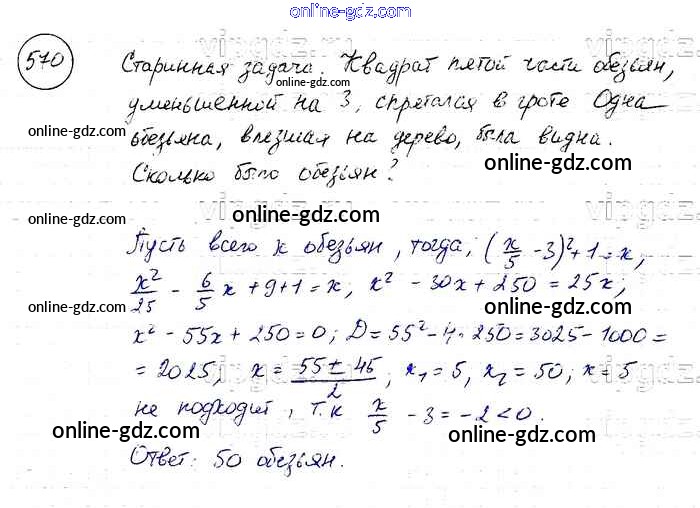 online-gdz.com
570 Старинная задача. Квадрат пятой части обезьян,
online-gdz.com
уменьшенной на 3, спрятался в гроте Одна
online-gdz.com
обезьяна, влезшая на дерево, была видна.
online-gdz.com
Сколько было обезьян?
online-gdz.com
Пусть всего x обезьян, тогда, (x/5 - 3)² + 1 = x,
x²/25 - 6/5 x + 9 + 1 = x, x² - 30x + 250 = 25x;
online-gdz.com online-gdz.com
x² - 55x + 250 = 0; D = 55² - 4 · 250 = 3025 - 1000 =
= 2025, x = (55 ± 45)/2; x₁ = 5, x₂ = 50; x = 5
online-gdz.com
не подходит, т.к x/5 - 3 = -2 < 0.
online-gdz.com online-gdz.com
Ответ: 50 обезьян.